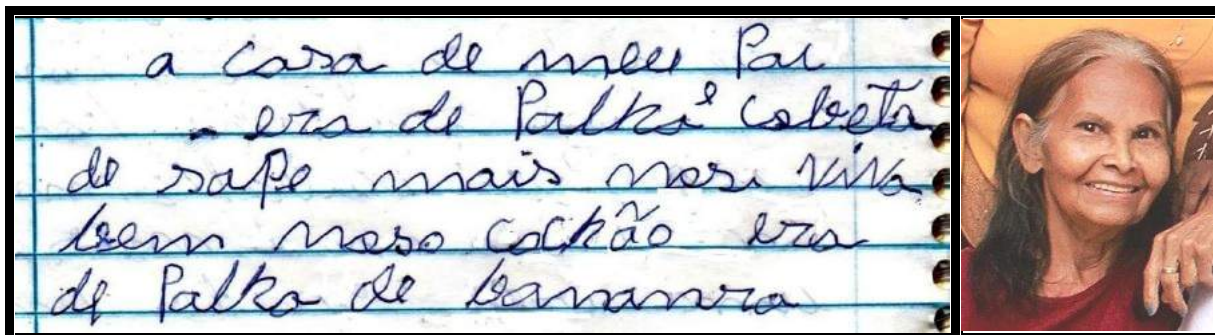 a casa de meu Pai
era de Palka e cobeta
de sape mais nosi viva
bem noso cochão era
de Palka de bananra